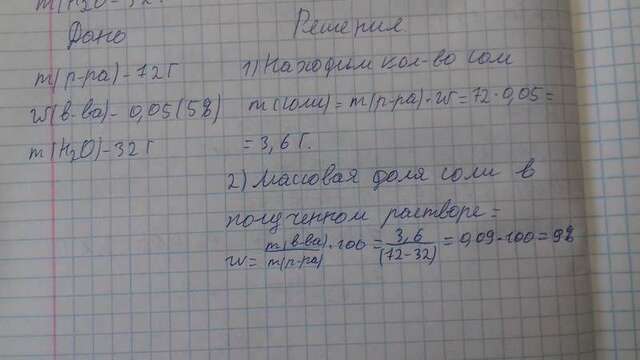 m(H₂O-32г
Дано
Решения
m(р-ра)-72г
W(в-ва)-0,05(5%)
m(H₂O)-32г
1) Находим кол-во соли
m(соли)=m(р-ра)·W=72·0,05=
=3,6г.
2) Массовая доля соли в
полученном растворе=
W=m(в-ва)/m(р-ра)·100=3,6/(72-32)=0,09·100=9%